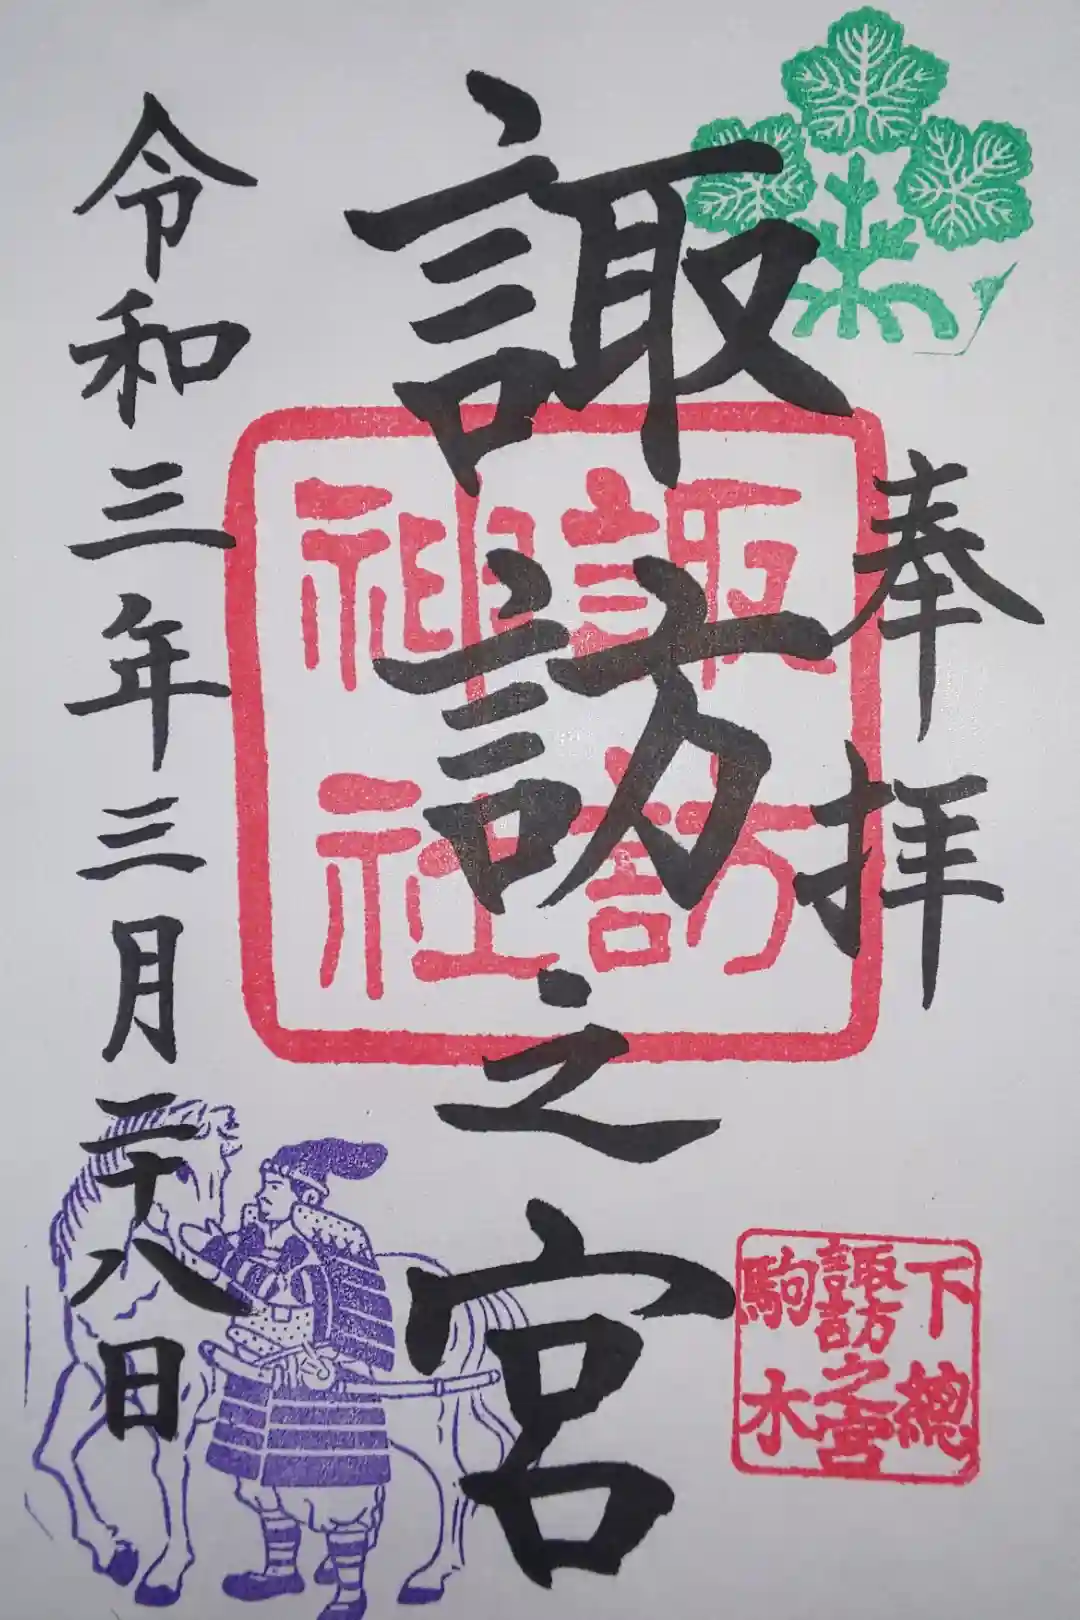 奉拝
諏訪之宮
諏訪
神社
下總
諏訪之宮
駒木
令和三年三月二十八日